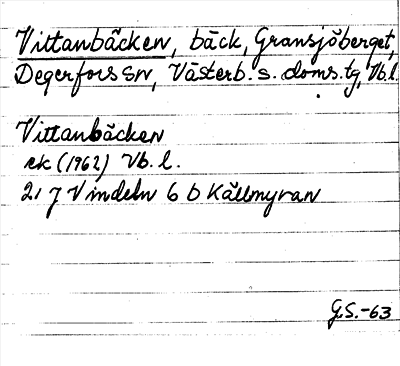 Vittanbäcken, bäck, Gransjöberget,
Degerfors sn, Västerb. s. doms.tg, Vb.l.
Vittanbäcken
ek (1962) Vb. l.
21 J Vindeln 6 b Källmyran
G.S.-63